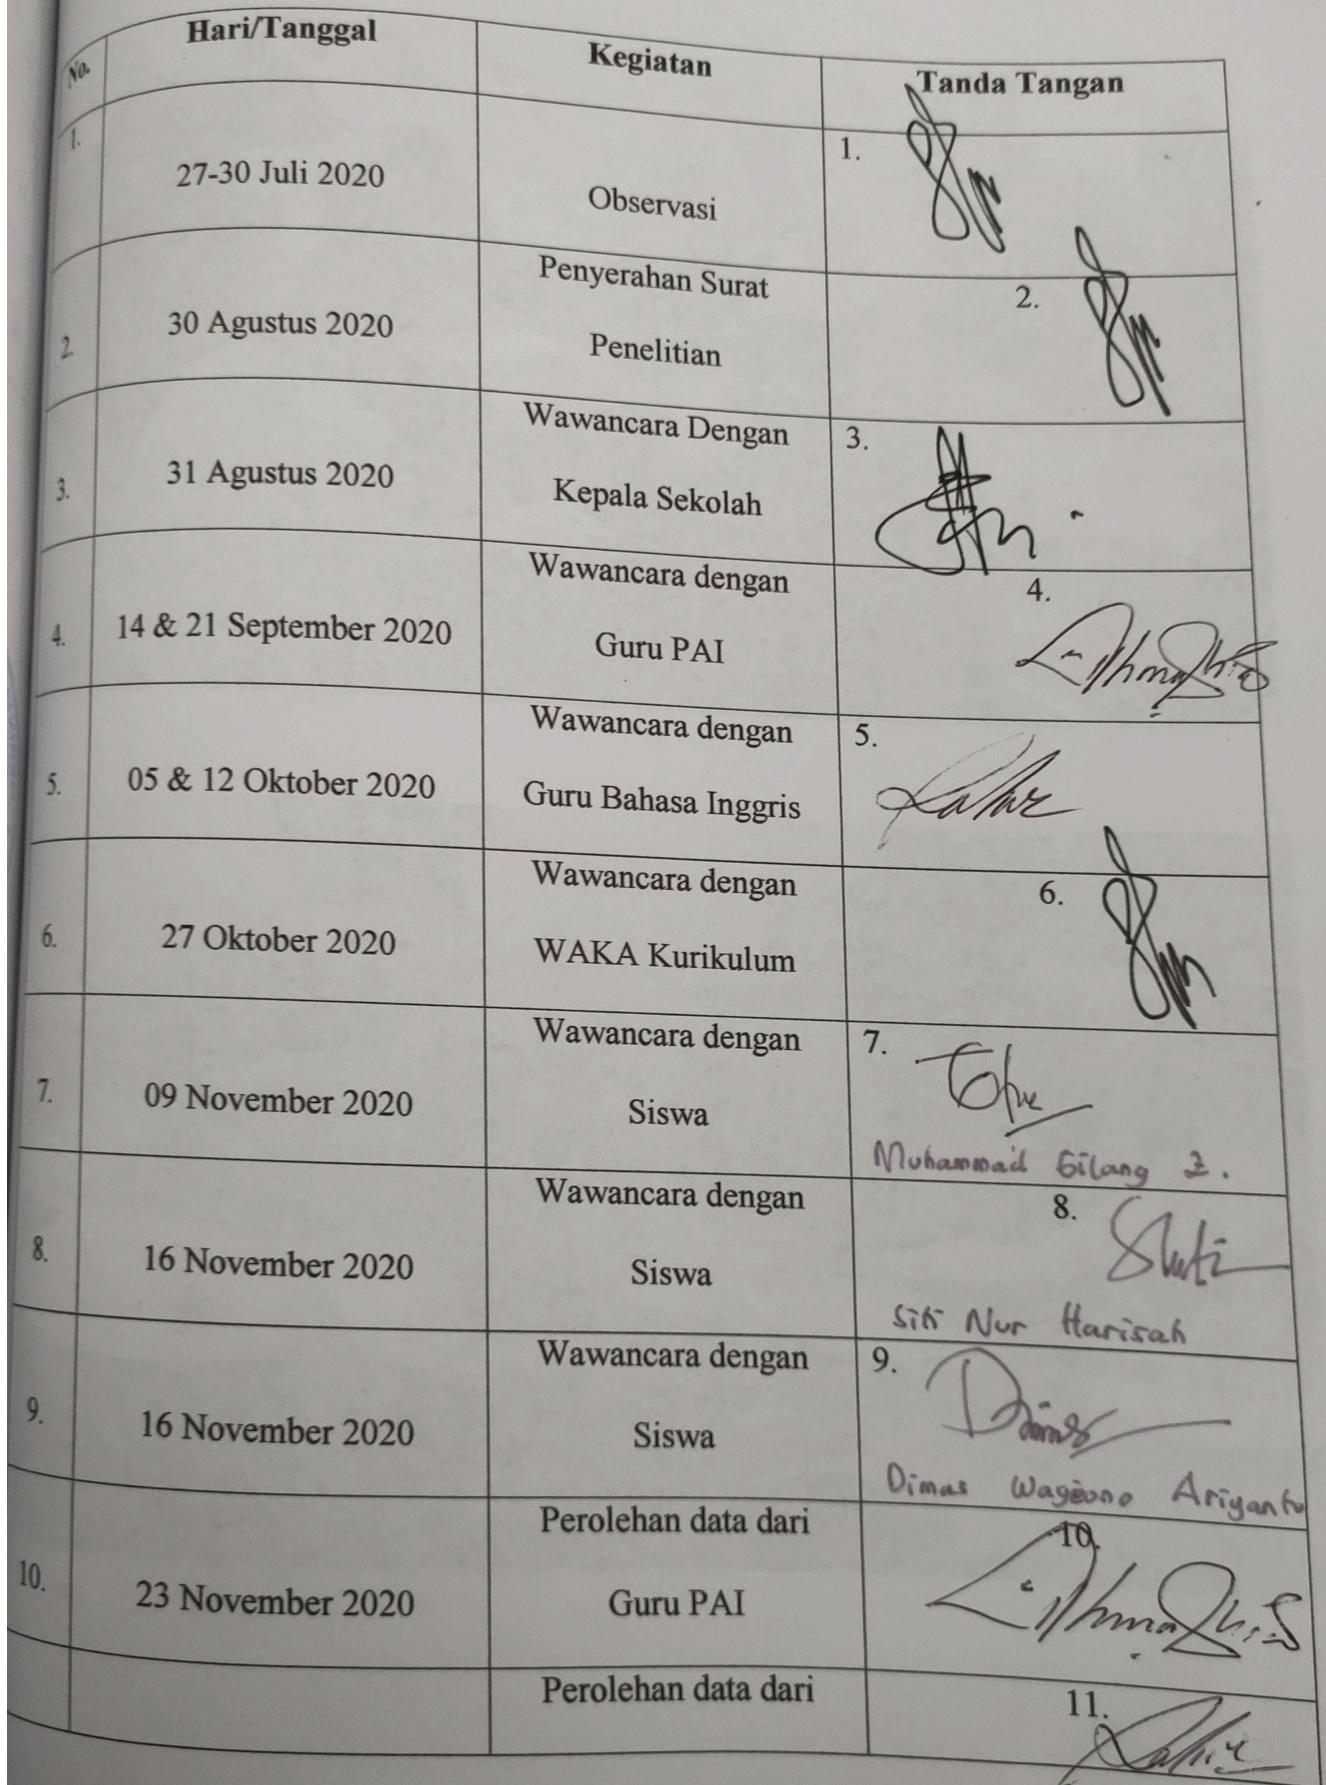 No.
Hari/Tanggal
Kegiatan
Tanda Tangan
1.
27-30 Juli 2020
Observasi
1.
2.
30 Agustus 2020
Penyerahan Surat
Penelitian
2.
3.
31 Agustus 2020
Wawancara Dengan
Kepala Sekolah
3.
4.
14 & 21 September 2020
Wawancara dengan
Guru PAI
4.
5.
05 & 12 Oktober 2020
Wawancara dengan
Guru Bahasa Inggris
5.
6.
27 Oktober 2020
Wawancara dengan
WAKA Kurikulum
6.
7.
09 November 2020
Wawancara dengan
Siswa
7.
Muhammad Gilang Z.
8.
16 November 2020
Wawancara dengan
Siswa
8.
Siti Nur Harisah
9.
16 November 2020
Wawancara dengan
Siswa
9.
Dimas
Dimas Ariyanto
10.
23 November 2020
Perolehan data dari
Guru PAI
10.
Perolehan data dari
11.